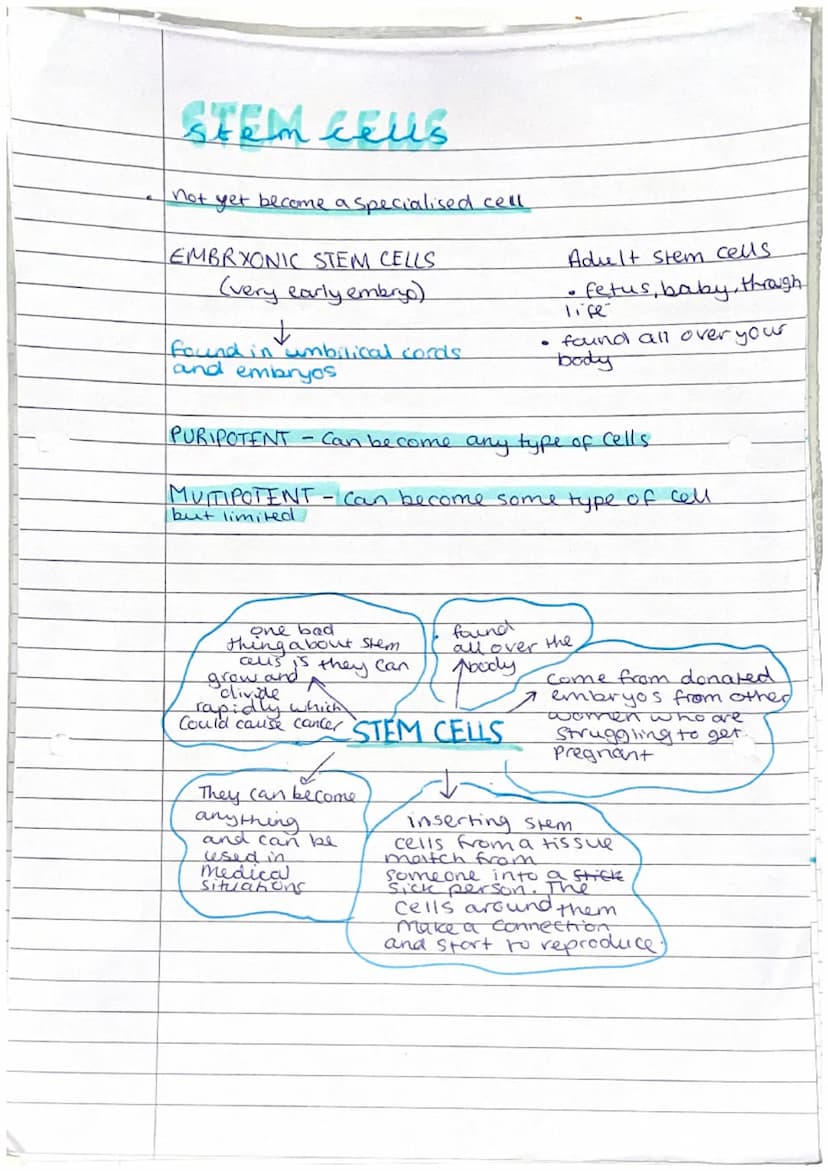 STEM CELLS
stem cells
• Not yet become a specialised cell
EMBRYONIC STEM CELLS
(very early embryo)
found in umbilical cords
and embryos
Adult stem cells
• fetus, baby, through
life
• found all over your
body
PURIPOTENT - Can become any type of cells
MUTIPOTENT - Can become some type of cell
but limited
one bad
thing about stem
cells is they can
grow and
divide
rapidly which
Could cause cancer
found
all over the
body
come from donated
embryos from other
women who are
struggling to get
pregnant
STEM CELLS
They can become
anything
and can be
used in
Medical
situations
inserting stem
cells from a tissue
match from
someone into a stick
sick person. The
cells around them
Make a connection
and start to reproduce.